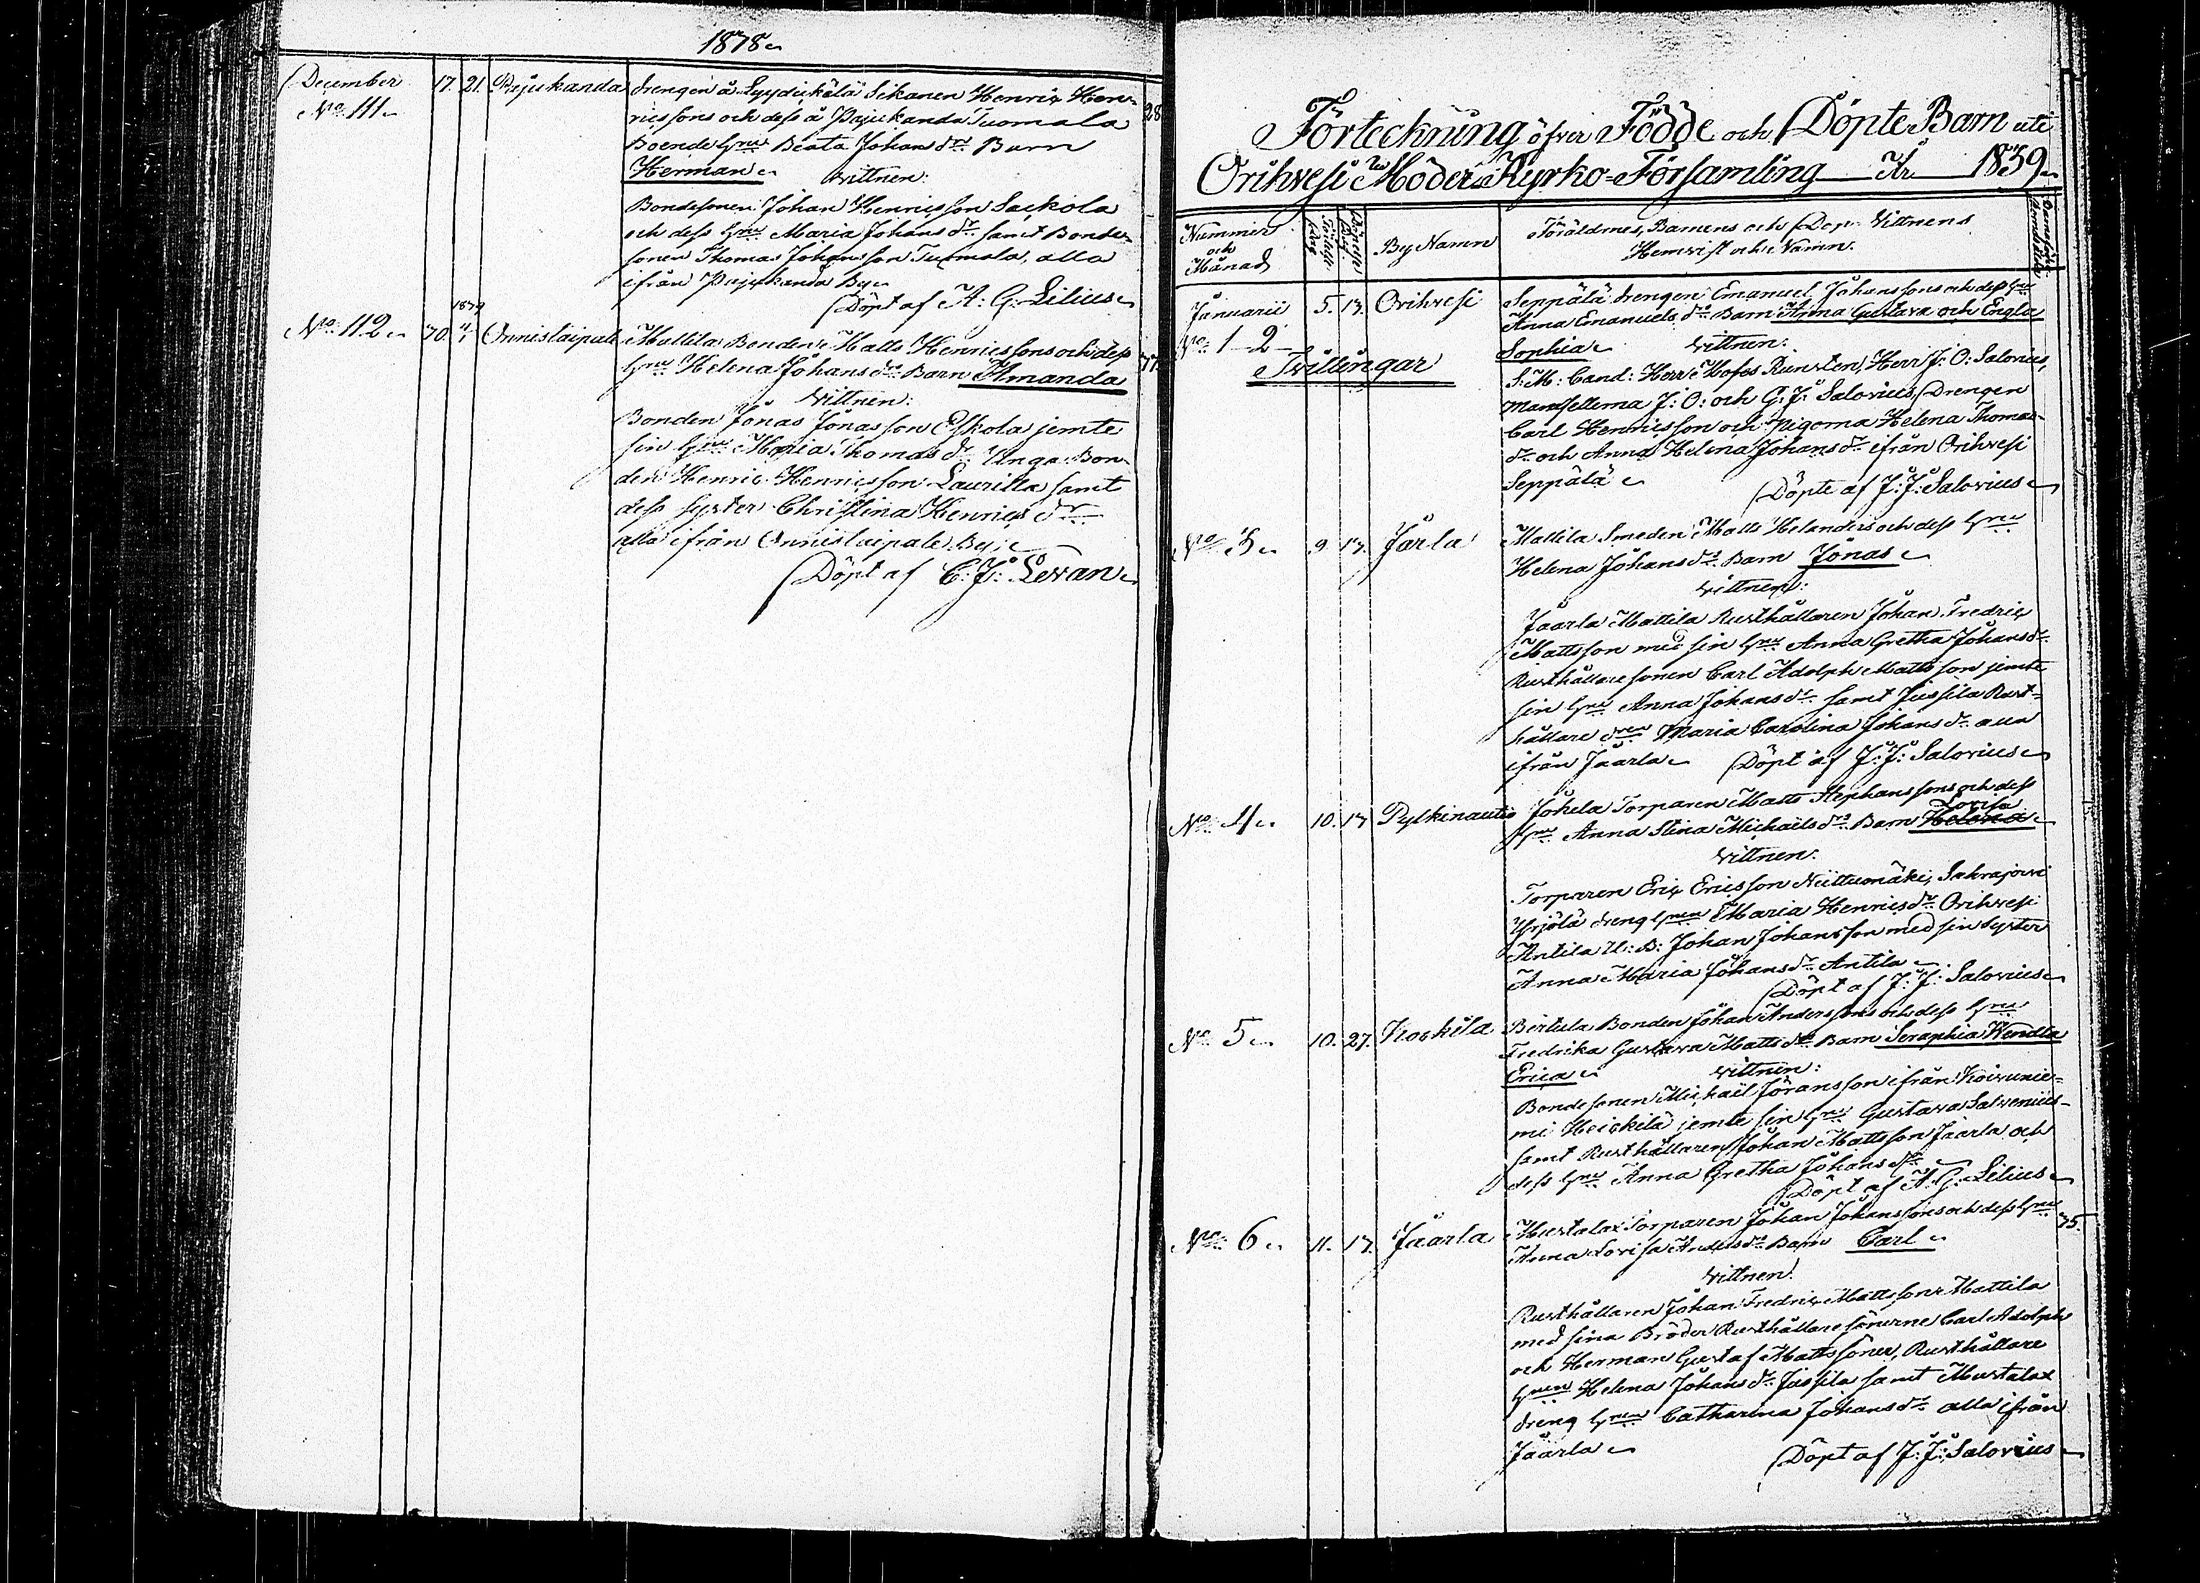 1838
December 17. 21. Pajukanda Drengen å Syydinkälä Sikanen Henric Hen-
No 111 ricssons och dess å Pajukanda Tuomala 28
Boende Hru Beata Johansdrs Barn
Herman Vittnen:
Bondesonen Johan Henricsson Sackola
och dess Hru Maria Johansdr samt Bonde-
sonen Thomas Johansson Tuomala, alla
ifrån Pajukanda By
Döpt af A: G: Lilius
1839
No 112 30. 4/1 Onnistaipale Mattila Bonden Matts Henricssons och dess
Hru Helena Johansdrs Barn Amanda
Vittnen:
Bonden Jonas Jonasson Eskola jemte
sin Hru Maria Thomasdr Unga Bon-
den Henric Henricsson Laurilla samt
dess syster Christina Henricsdr
alla ifrån Onnistaipale By
Döpt af C: J: Levan
Förteckning öfver Födde och Döpte Barn uti
Orihvesi Moder Kyrko-Församling År 1839
Nummer och Månad
By Namn
Föräldrnes, Barnens och Dop Vittnens
Hemvist och Namn.
Januarii 5. 13. Orihvesi Seppälä drengen Emanuel Johanssons och dess Hru
No 1-2 Anna Emanuelsdrs Barn Anna Gustava och Engla
Tvillingar Sophia Vittnen:
S: M: Cand: Herr Moses Runsten, Herr J: O: Salovius,
Mamsellerna J: O: och G: J: Salovius, Drengen
Carl Henricsson och Pigorna Helena Thomas-
dr och Anna Helena Johansdr ifrån Orihvesi
Seppälä
Döpte af J: J: Salovius
No 3 9. 13. Jarla Mattila Smeden Matts Helanders och dess Hru
Helena Johansdrs Barn Jonas
Vittnen:
Jaarla Mattila Rusthållaren Johan Fredric
Mattsson med sin Hru Anna Gretha Johansdr
Rusthållaresonen Carl Adolph Mattsson jemte
sin Hru Anna Johansdr samt Jussila Rust-
hållare dren Maria Carolina Johansdr alla
ifrån Jaarla Döpt af J: J: Salovius
No 4 10. 13. Pylkinautio Jokela Torparen Matts Stephanssons och dess
Lovisa
Hru Anna Stina Michaelsdrs Barn Helena
Vittnen:
Torparen Eric Ericsson Niittumäki, Sakrajärvi
Yrjölä dreng Hrun Maria Henricsdr Orihvesi
Antila U: B: Johan Johansson med sin syster
Anna Maria Johansdr Antila
Döpt af J: J: Salovius
No 5 10. 27. Kockila Birtula Bonden Johan Anderssons och dess Hru
Fredrika Gustava Mattsdrs Barn Seraphia Wendla
Erica Vittnen:
Bondesonen Michaël Göransson ifrån Koivunie-
mi Heickilä jemte sin Hru Gustava Salvenius
samt Rusthållaren Johan Mattsson Jaarla och
dess Hru Anna Gretha Johansdr
Döpt af A: G: Lilius
No 6 11. 13. Jaarla Mustalax Torparen Johan Johanssons och dess Hru 75.
Anna Lovisa Andersdrs Barn Carl
Vittnen:
Rusthållaren Johan Fredric Mattsson Mattila
med sina Bröder Rusthållare sönerne Carl Adolph
och Herman Gustaf Mattssöner, Rusthållare
Hrun Helena Johansdr Jussila samt Mustalax
dreng Hrun Catharina Johansdr alla ifrån
Jaarla
Döpt af J: J: Salovius